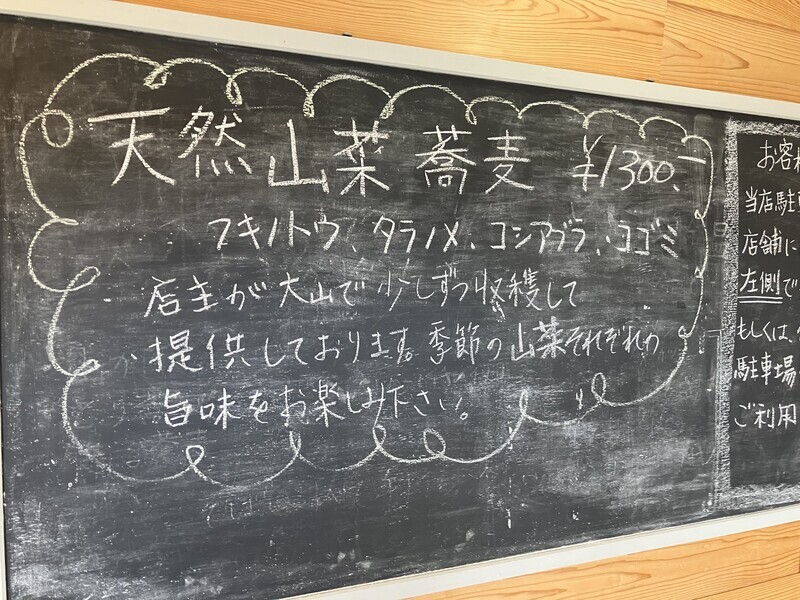 天然山菜蕎麦 ¥1300.-
フキノトウ、タラノメ、コシアブラ、コゴミ
店主が大山で少しずつ収穫して
提供しております。季節の山菜それぞれの
旨味をお楽しみ下さい。
お客様
当店駐車
店舗に
左側で
もしくは、
駐車場
ご利用